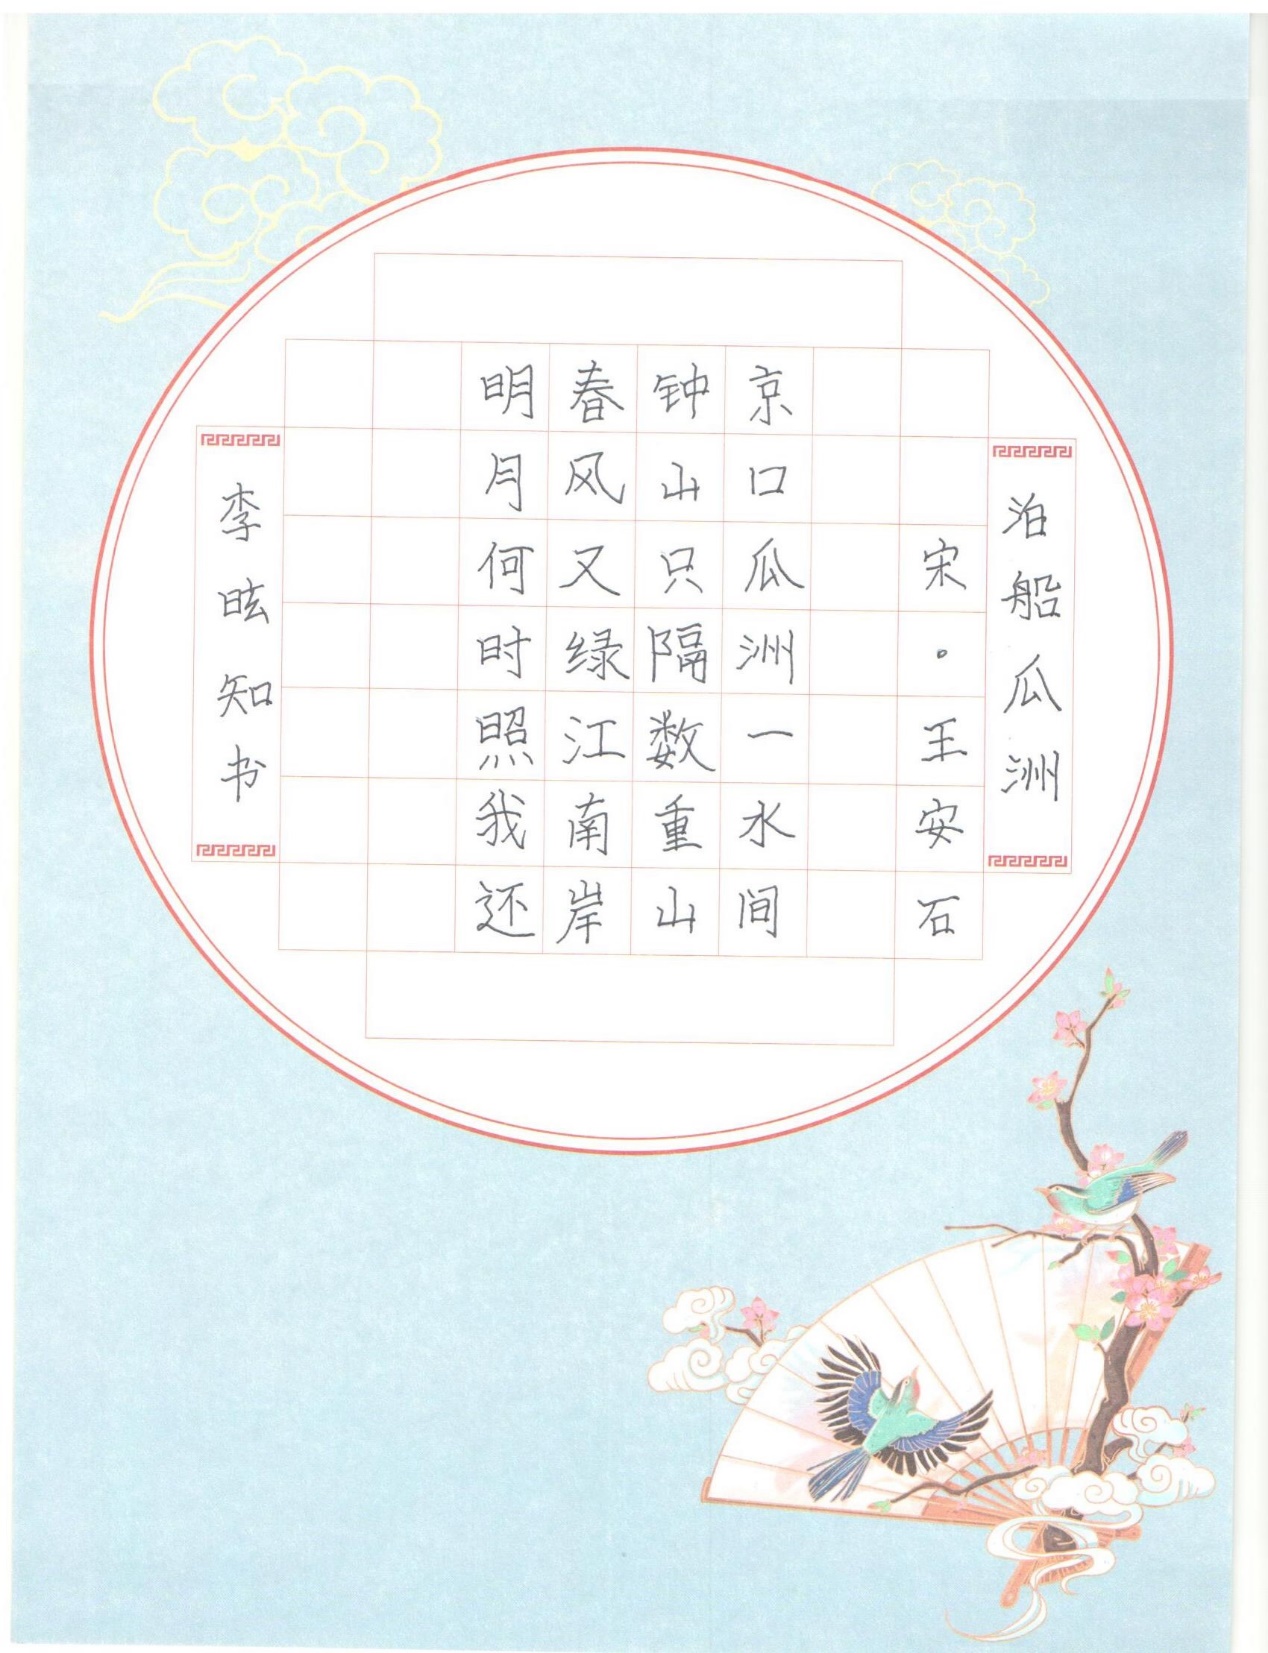 泊船瓜洲
宋·王安石
京口瓜洲一水间
钟山只隔数重山
春风又绿江南岸
明月何时照我还
李昡知书